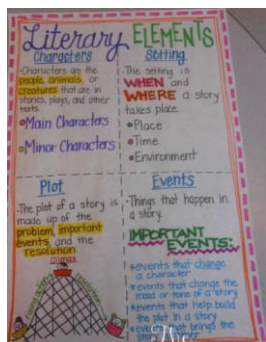 Literary ELEMENTS
Characters
-Characters are the
people, animals, or
creatures that are in
stories, plays, and other
texts.
Main Characters
Minor Characters
Setting
-The setting is
WHEN and
WHERE a story
takes place.
Place
Time
Environment
Plot
-The plot of a story is
made up of the
problem, important
events, and the
resolution.
Climax
Events
-Things that happen in
a story.
IMPORTANT
EVENTS:
events that change
a character
events that change the
mood or tone of a story
events that help build
the plot in a story
that brings the